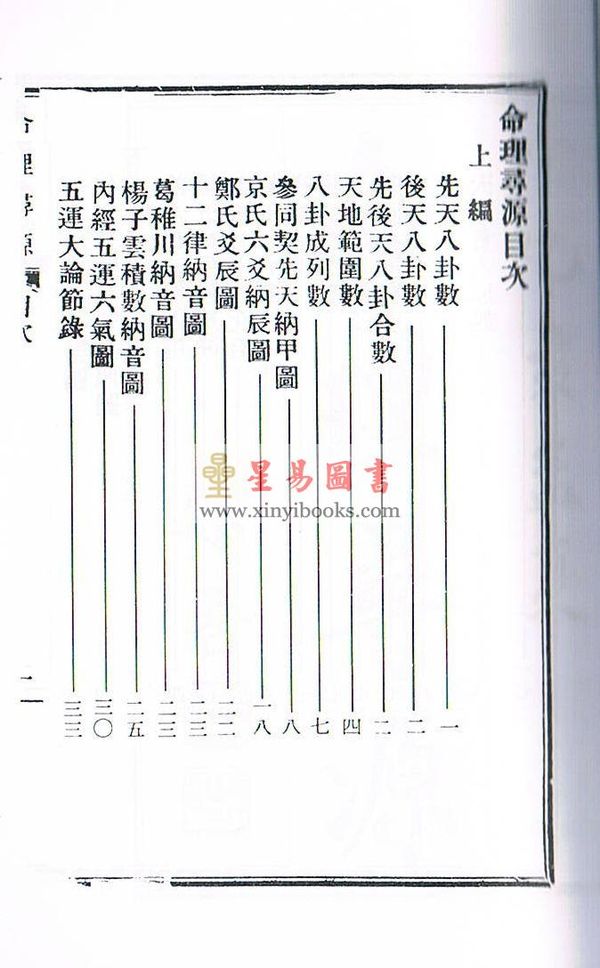 命理尋源目次
上編
先天八卦數 一
後天八卦數 二
先後天八卦合數 二
天地範圍數 四
八卦成列數 七
參同契先天納甲圖 八
京氏六爻納辰圖 一八
鄭氏爻辰圖 二二
十二律納音圖 二三
葛稚川納音圖 二三
楊子雲積數納音圖 二五
內經五運六氣圖 三〇
五運大論節錄 三三
星易圖書
www.xinyibooks.com